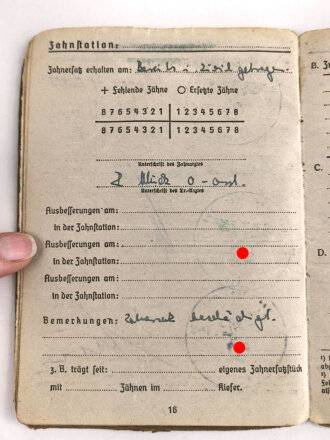 Zahnstation:
Zahnersatz erhalten am: Bereits i. Zivil getragen
+ Fehlende Zähne O Ersetzte Zähne
8 7 6 5 4 3 2 1 | 1 2 3 4 5 6 7 8
8 7 6 5 4 3 2 1 | 1 2 3 4 5 6 7 8
Unterschrift des Zahnarztes
Unterschrift des Tr.-Arztes
Ausbesserungen am:
in der Zahnstation:
Ausbesserungen am:
in der Zahnstation:
Ausbesserungen am:
in der Zahnstation:
Bemerkungen: beschädigt.
z. B. trägt seit: eigenes Zahnersatzstück
mit Zähnen im Kiefer.
16
B.
C.
D.